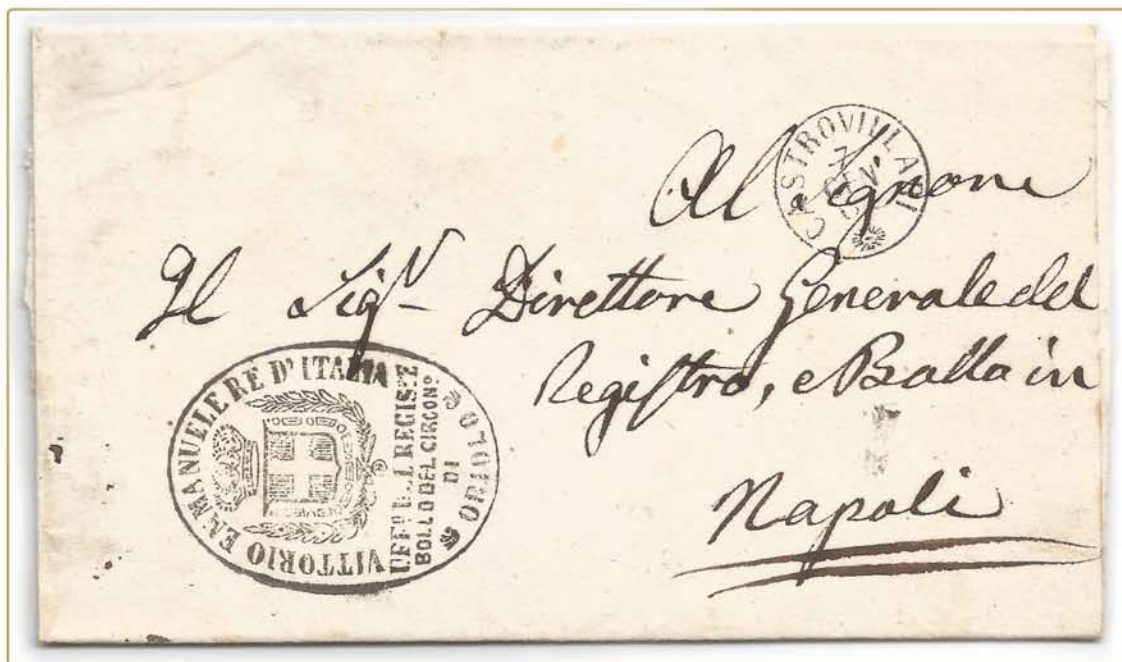 CASTROVILLARI
7
GEN
Al Signore
Il Sigr Direttore Generale del
Registro, e Bollo in
Napoli
VITTORIO EMANUELE RE D'ITALIA
UFF° DEL REGIST E
BOLLO DEL CIRCON°
DI
ORIOLO